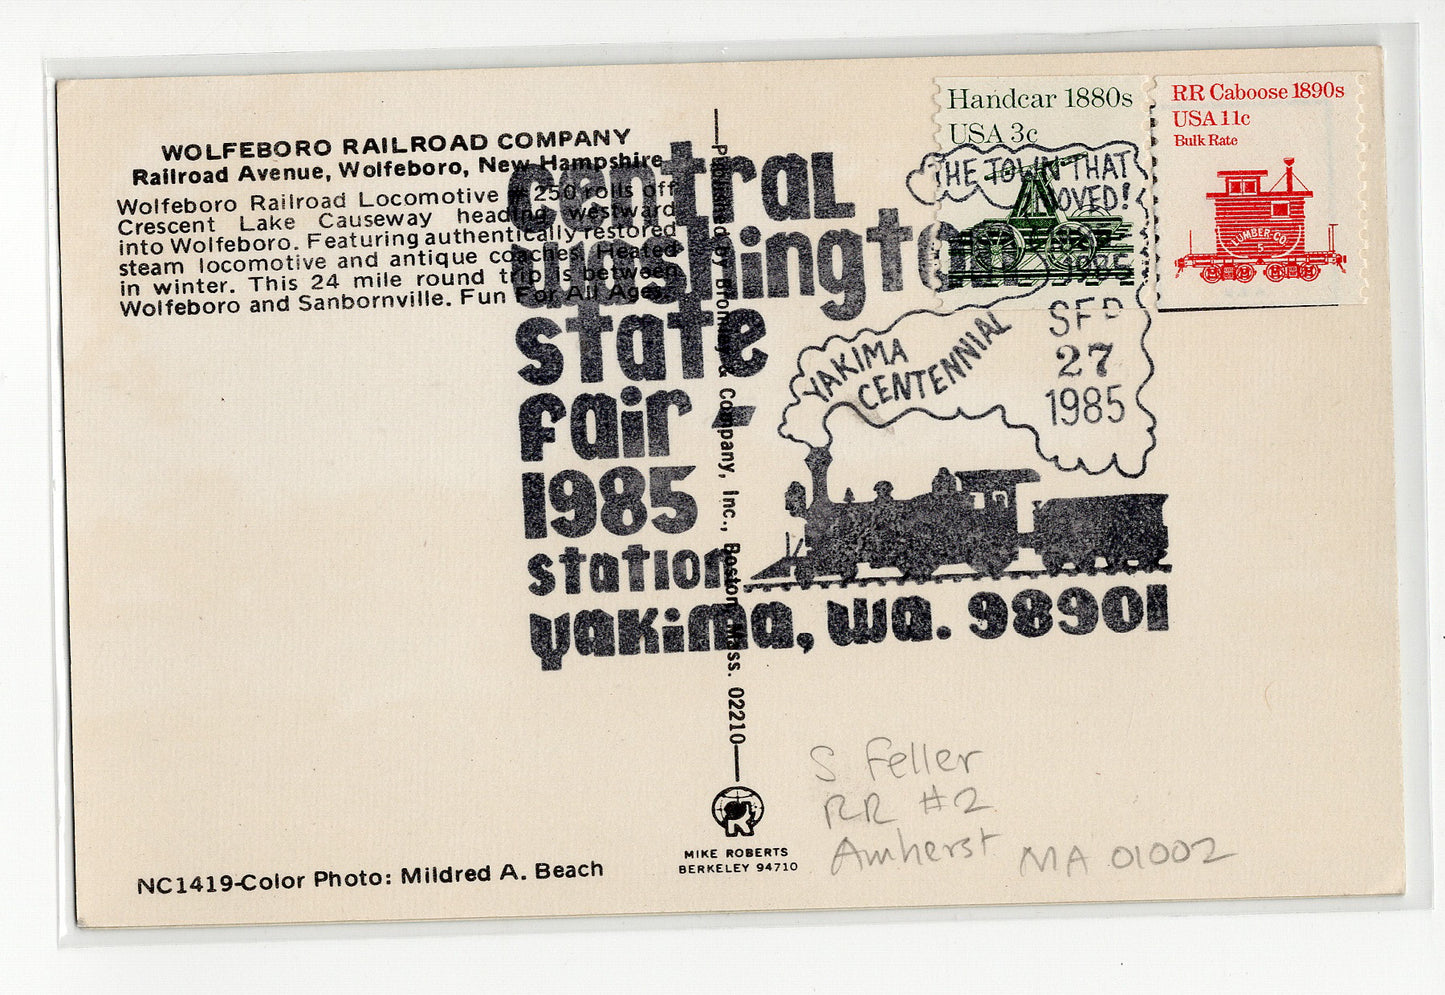 WOLFEBORO RAILROAD COMPANY
Railroad Avenue, Wolfeboro, New Hampshire
Wolfeboro Railroad Locomotive # 250 rolls off
Crescent Lake Causeway heading westward
into Wolfeboro. Featuring authentically restored
steam locomotive and antique coaches. Heated
in winter. This 24 mile round trip is between
Wolfeboro and Sanbornville. Fun For All Ages.
NC1419-Color Photo: Mildred A. Beach
Published by Bromley & Company, Inc., Boston, Mass. 02210
MIKE ROBERTS
BERKELEY 94710
Handcar 1880s
USA 3c
RR Caboose 1890s
USA 11c
Bulk Rate
LUMBER-CO.
5
THE TOWN THAT
MOVED!
1985
YAKIMA
CENTENNIAL
SEP
27
1985
central
washington
state
fair -
1985
station
yakima, wa. 98901
S Feller
RR #2
Amherst MA 01002